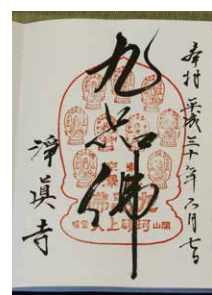 奉拝 平成三十年六月七日
九品佛
淨眞寺